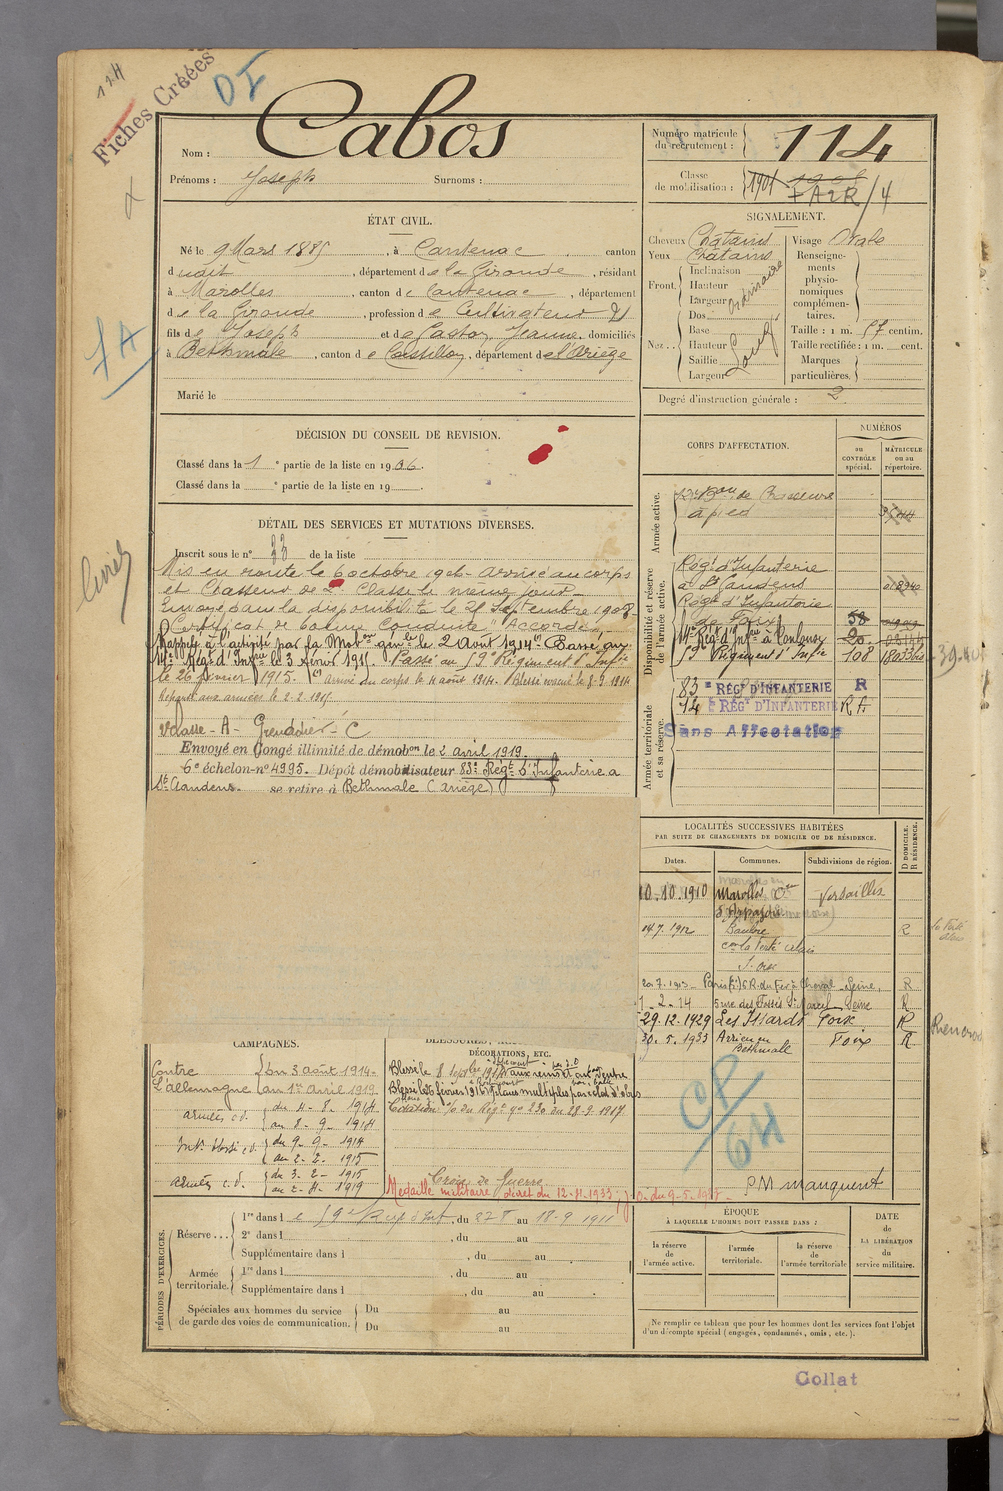 124
Fiches Créées
DI
Nom : Cabos
Prénoms : Joseph Surnoms :
Numéro matricule du recrutement : 114
Classe de mobilisation : 1901
ÉTAT CIVIL.
Né le 9 Mars 1885, à Cantenac, canton
dudit, département de la Gironde, résidant
à Marolles, canton de Cantenac, département
de la Gironde, profession de Cultivateur
fils de Joseph et de Castay Jeanne, domiciliés
à Bethmale, canton de Castillon, département de l'Ariège
Marié le
SIGNALEMENT.
Cheveux Châtains Visage Ovale
Yeux Châtains
Front. Inclinaison Hauteur Largeur ordinaire
Nez.. Dos Base Hauteur Saillie Largeur
Renseignements physionomiques complémentaires.
Taille : 1 m. 57 centim.
Taille rectifiée : 1 m. cent.
Marques particulières.
Degré d'instruction générale : 2
DÉCISION DU CONSEIL DE REVISION.
Classé dans la 1e partie de la liste en 1906.
Classé dans la e partie de la liste en 19 .
CORPS D'AFFECTATION.
NUMÉROS
au CONTRÔLE spécial.
MATRICULE ou au répertoire.
Armée active.
12e Bon de Chasseurs
à pied
Disponibilité et réserve de l'armée active.
Régt d'Infanterie
à St Gaudens
Régt d'Infanterie
de Foix
14e Régt d'Infie à Toulouse
59 Régiment d'Infie 108
Armée territoriale et sa réserve.
83e RÉGt D'INFANTERIE R
14e RÉGt D'INFANTERIE RA
Sans Affectation
DÉTAIL DES SERVICES ET MUTATIONS DIVERSES.
Inscrit sous le n° 33 de la liste
Mis en route le 6 octobre 1906. Arrivé au corps
et Chasseur de 2e Classe le même jour.
Envoyé dans la disponibilité le 25 Septembre 1908
Certificat de bonne Conduite "Accordé"
Rappelé à l'activité par la Mobon génle le 2 Août 1914. Passé au
14e Régt d'Infie le 3 février 1915. Passé au 59 Régiment d'Infie
le 26 février 1915. Arrivé au corps le 4 août 1914. Blessé évacué le 8-9-1914
Reparti aux armées le 2.2.1915.
Classe - A - Grenadier - C
Envoyé en Congé illimité de démobon le 2 avril 1919.
6e échelon - n° 4995. Dépôt démobilisateur 83e Régt d'Infanterie à
St Gaudens. se retire à Bethmale (Ariège)
LOCALITÉS SUCCESSIVES HABITÉES
PAR SUITE DE CHANGEMENTS DE DOMICILE OU DE RÉSIDENCE.
Dates. Communes. Subdivisions de région. D DOMICILE. R RÉSIDENCE.
10.10.1910 Marolles Versailles
14.7.1912 R
S. Oise
20.7.1913 Seine, R
1-2-14 5 rue des Fossés St Marcel Seine R
29.12.1929 Les Issards Foix R
30.5.1933 Arrien en Bethmale Foix R
CAMPAGNES.
Contre l'allemagne { du 3 août 1914 - au 1er Avril 1919
armées c.d. { du 4-8-1914 au 8-9-1914
Int. { du 9-9-1914 au 2-2-1915
armées c.d. { du 3-2-1915 au 2-4-1919
BLESSURES, ACTIONS
DÉCORATIONS, ETC.
Blessé le 8 Septbre 1914 aux reins et au ventre
Blessé le 26 février 1916 plaies multiples par éclat d'obus
Citation % du Régt n° 230 du 28-9-1917
Croix de Guerre
Médaille militaire décret du 12-11-1933
CP
64
PM manquent
PÉRIODES D'EXERCICES.
Réserve ... 1re dans le 59e Reg d'Inf, du 27 8 au 18-9 1911
2e dans l , du au
Supplémentaire dans l , du au
Armée territoriale. 1re dans l , du au
Supplémentaire dans l , du au
Spéciales aux hommes du service de garde des voies de communication. Du au
Du au
ÉPOQUE
À LAQUELLE L'HOMME DOIT PASSER DANS :
la réserve de l'armée active.
l'armée territoriale.
la réserve de l'armée territoriale
DATE DE LA LIBÉRATION du service militaire.
Ne remplir ce tableau que pour les hommes dont les services font l'objet
d'un décompte spécial (engagés, condamnés, omis, etc.).
Collat